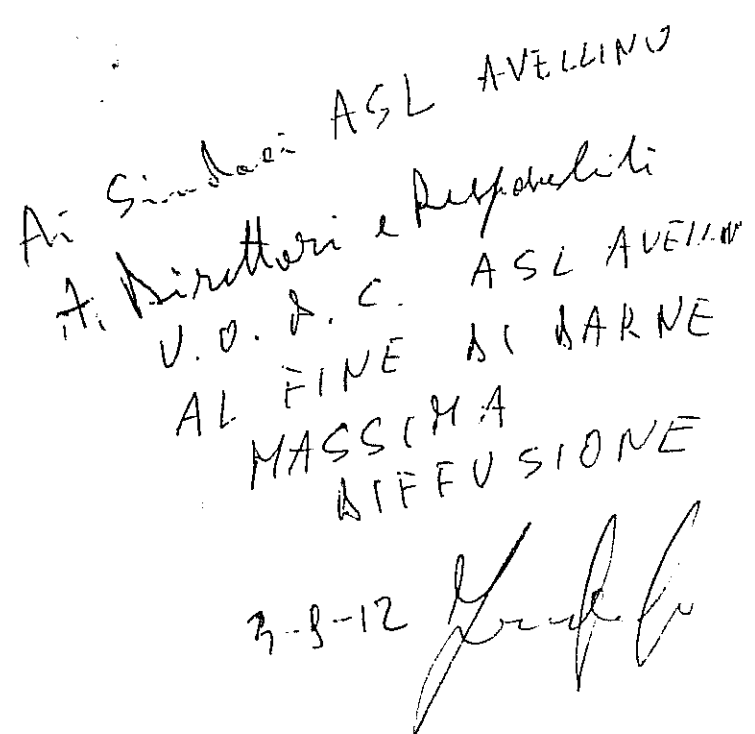 Ai Sindaci ASL AVELLINO
Ai Direttori e Responsabili
U.O.D.C. ASL AVELLINO
AL FINE DI DARNE
MASSIMA
DIFFUSIONE